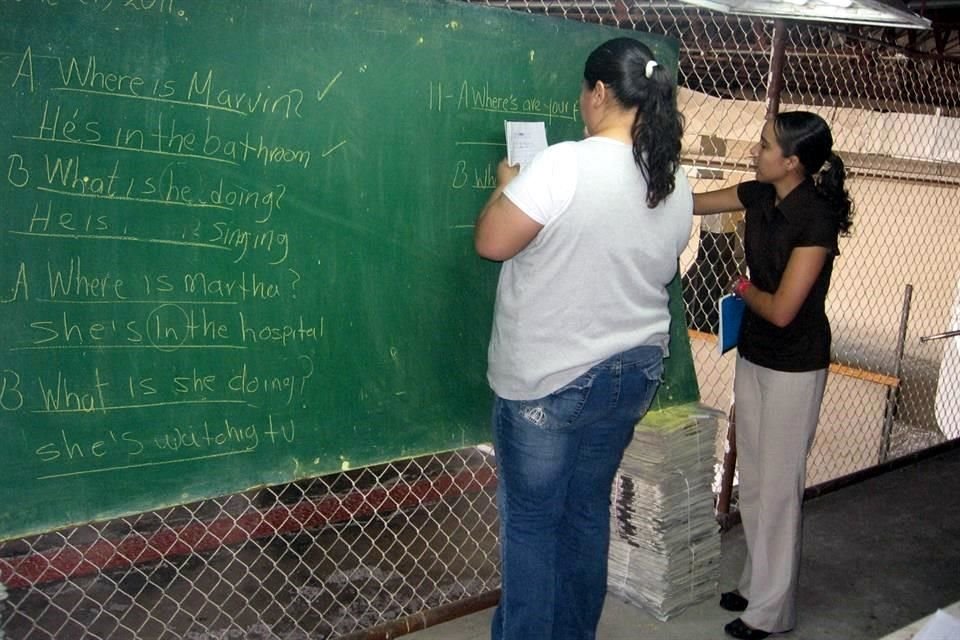 2011.
A Where is Marvin? ✓
He's in the bathroom ✓
B What is he doing?
He is singing
A Where is martha?
she's in the hospital
B What is she doing?
she's watchig tv
11-A Where's are your
B